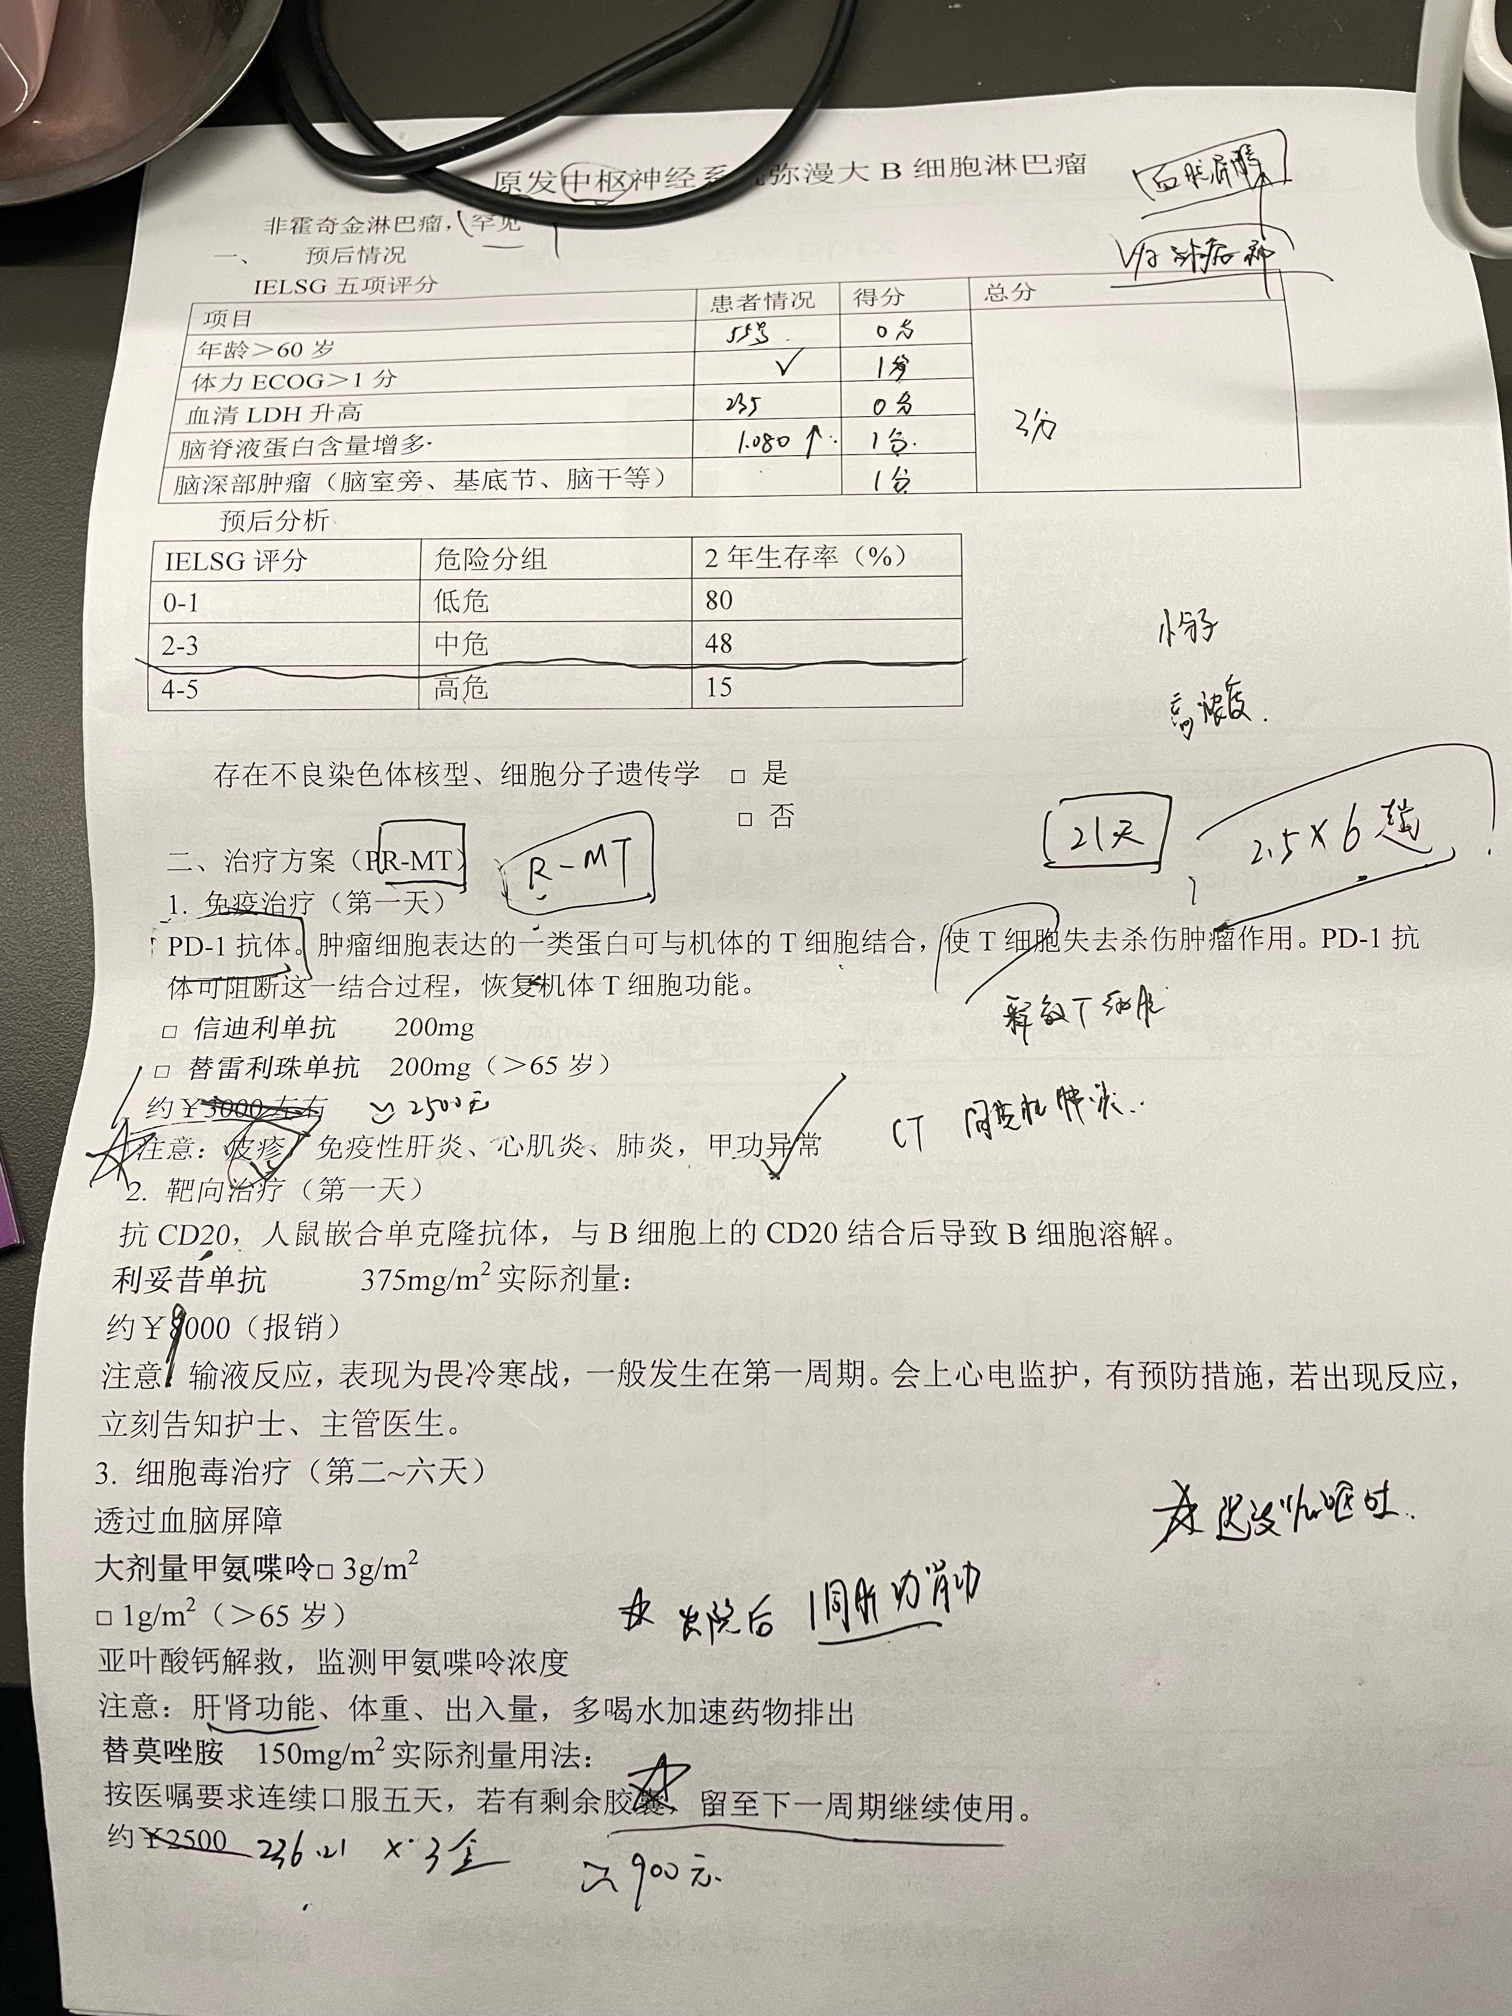 原发中枢神经系 弥漫大 B 细胞淋巴瘤
血脑屏障
非霍奇金淋巴瘤，罕见
一、 预后情况
IELSG 五项评分
项目 患者情况 得分 总分
年龄＞60 岁 55岁 0分
体力 ECOG＞1 分 ✓ 1分
血清 LDH 升高 235 0分
脑脊液蛋白含量增多 1.080 ↑ 1分
脑深部肿瘤（脑室旁、基底节、脑干等） 1分
3分
预后分析
IELSG 评分 危险分组 2 年生存率（%）
0-1 低危 80
2-3 中危 48
4-5 高危 15
小分子
高浓度.
存在不良染色体核型、细胞分子遗传学 □ 是
□ 否
二、治疗方案（PR-MT） R-MT
21天 2.5×6
1. 免疫治疗（第一天）
PD-1 抗体。肿瘤细胞表达的一类蛋白可与机体的 T 细胞结合，使 T 细胞失去杀伤肿瘤作用。PD-1 抗
体可阻断这一结合过程，恢复机体 T 细胞功能。
释放T细胞
□ 信迪利单抗 200mg
□ 替雷利珠单抗 200mg（＞65 岁）
约￥3000 左右 ≌ 2500元
注意：皮疹，免疫性肝炎、心肌炎、肺炎，甲功异常
CT 间质性肺炎..
2. 靶向治疗（第一天）
抗 CD20，人鼠嵌合单克隆抗体，与 B 细胞上的 CD20 结合后导致 B 细胞溶解。
利妥昔单抗 375mg/m² 实际剂量：
约￥9000（报销）
注意：输液反应，表现为畏冷寒战，一般发生在第一周期。会上心电监护，有预防措施，若出现反应，
立刻告知护士、主管医生。
3. 细胞毒治疗（第二~六天）
透过血脑屏障
☆ 迟发性呕吐.
大剂量甲氨喋呤□ 3g/m²
□ 1g/m²（＞65 岁）
☆ 出院后 1周肝功肾功
亚叶酸钙解救，监测甲氨喋呤浓度
注意：肝肾功能、体重、出入量，多喝水加速药物排出
替莫唑胺 150mg/m² 实际剂量用法：
按医嘱要求连续口服五天，若有剩余胶囊，留至下一周期继续使用。
约￥2500 236.21 × 3盒
≌ 900元.